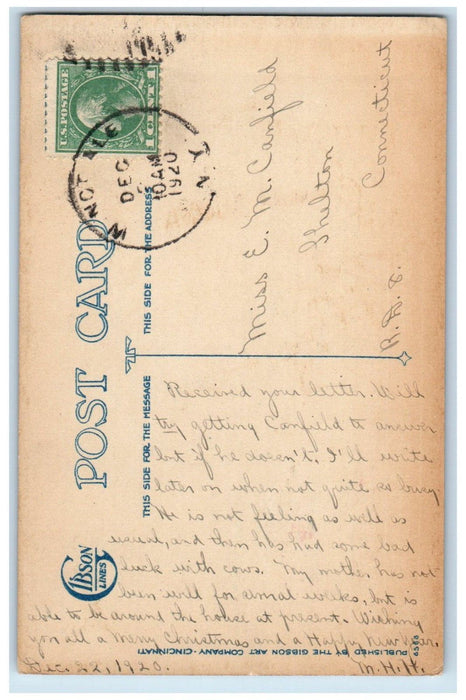 U.S. POSTAGE
1 CENT 1
DEC
10 AM
1920
N.Y.
POST CARD
THIS SIDE FOR THE ADDRESS
Miss E. M. Canfield
Shelton
Connecticut
THIS SIDE FOR THE MESSAGE
GIBSON
LINES
Received your letter. Will
try getting Canfield to answer
but if he doesn't. I'll write
later on when not quite so busy
He is not feeling as well as
usual, and then has had some bad
luck with cows. My mother has not
been well for several weeks, but is
able to be around the house at present. Wishing
you all a Merry Christmas and a Happy New Year.
Dec. 22, 1920. M.H.H.
PUBLISHED BY THE GIBSON ART COMPANY-CINCINNATI